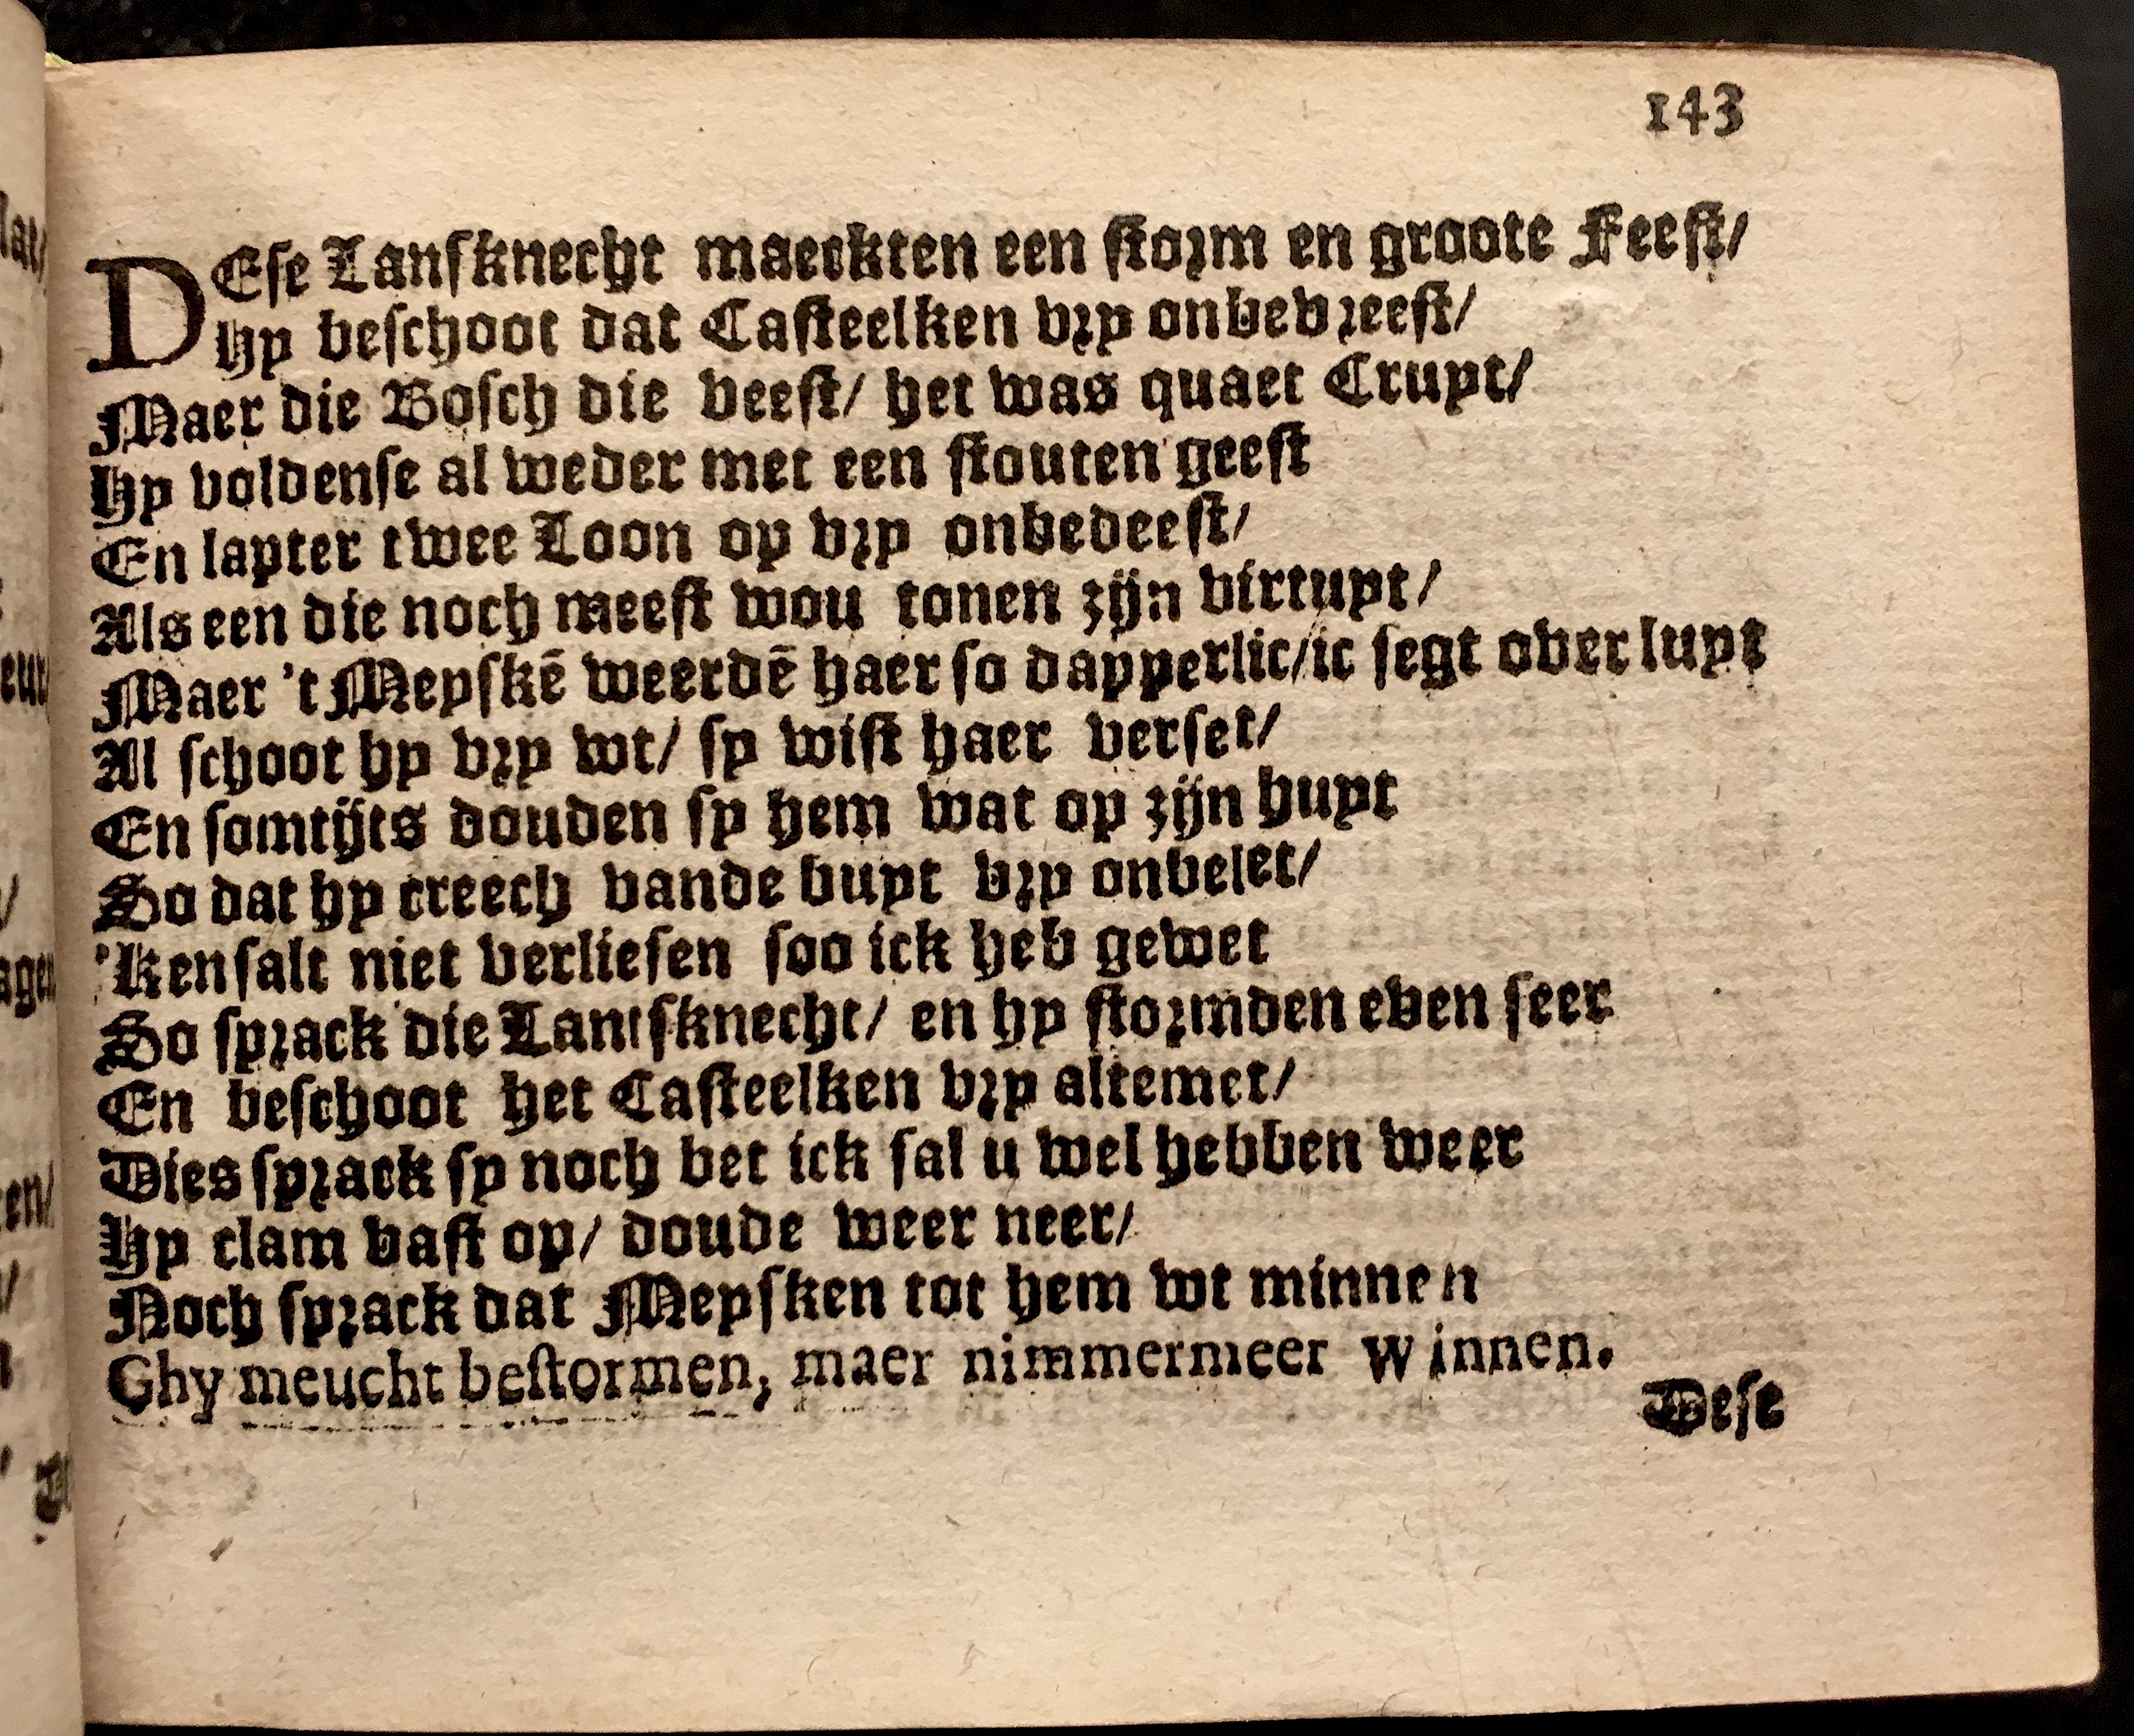 143
DEse Lansknecht maeckten een storm en groote Feest/
Hy beschoot dat Casteelken vry onbevreest/
Maer die Bosch die veest/ het was quaet Cruyt/
Hy voldense al weder met een stouten geest
En lapter twee Loon op vry onbedeest/
Als een die noch meest wou tonen zijn virtuyt/
Maer 't Meyskē weerdē haer so dapperlic/ic segt over luyt
Al schoot hy vry wt/ sy wist haer verset/
En somtijts douden sy hem wat op zijn huyt
So dat hy creech vande buyt vry onbelet/
'Ken salt niet verliesen soo ick heb gewet
So sprack die Lantsknecht/ en hy stormden even seer
En beschoot het Casteelken vry altemet/
Dies sprack sy noch bet ick sal u wel hebben weer
Hy clam vast op/ doude weer neer/
Noch sprack dat Meysken tot hem wt minnen
Ghy meucht bestormen, maer nimmermeer winnen.
Dese